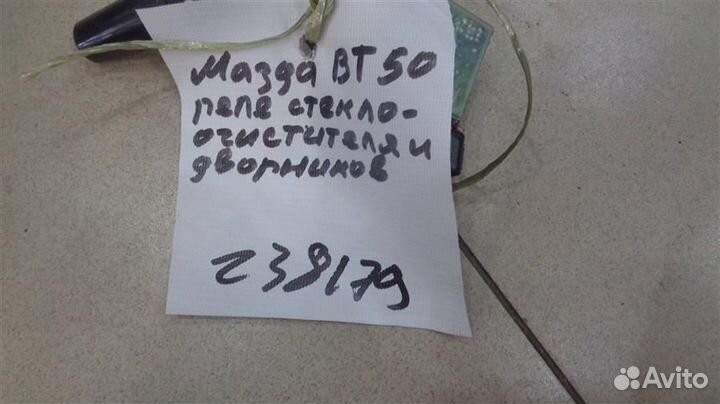 Мазда ВТ50
реле стекло-
очистителя и
дворников
239179
Avito